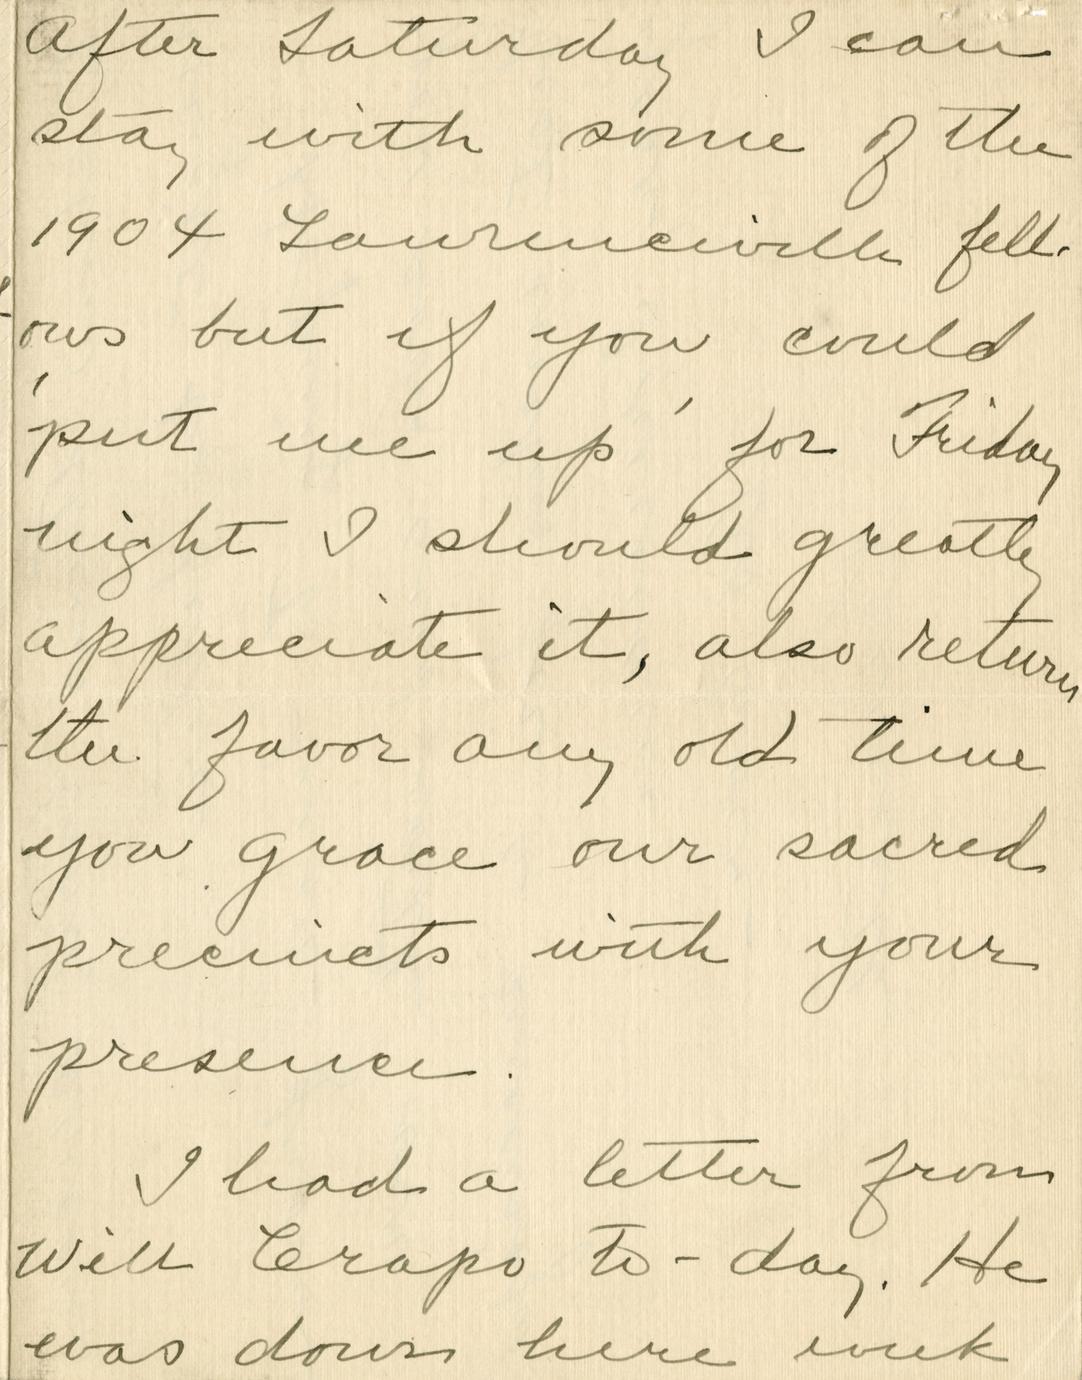 After Saturday I can
stay with some of the
1904 Lawrenceville fell-
ows but if you could
'put me up' for Friday
night I should greatly
appreciate it, also return
the favor any old time
you grace our sacred
precincts with your
presence.
I had a letter from
Will Crapo to-day. He
was down here week